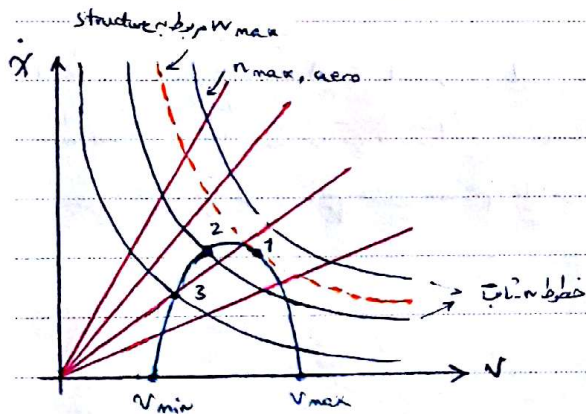 structure مربوط به n max
n max, aero
Ẋ
2
1
3
خطوط n ثابت
V
V min
V max